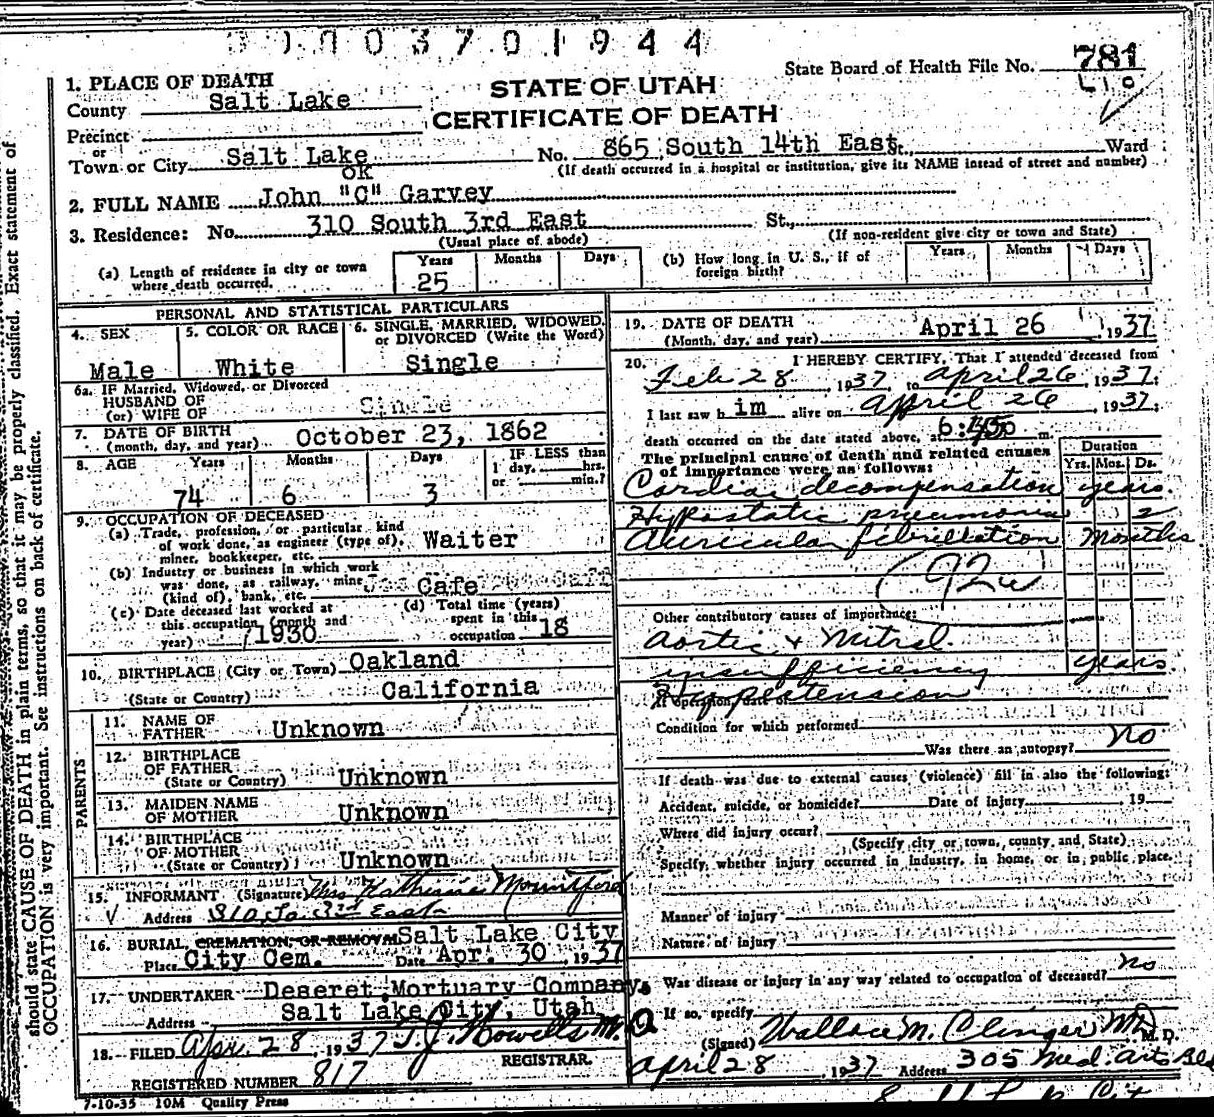 3 0 0 0 3 7 0 1 9 4 4
State Board of Health File No. 781
1. PLACE OF DEATH
STATE OF UTAH
County Salt Lake
CERTIFICATE OF DEATH
Precinct
or
Town or City Salt Lake No. 865 South 14th East St., Ward
(If death occurred in a hospital or institution, give its NAME instead of street and number)
OK
2. FULL NAME John "C" Garvey
3. Residence: No. 310 South 3rd East St.,
(Usual place of abode) (If non-resident give city or town and State)
(a) Length of residence in city or town where death occurred. Years 25 Months Days
(b) How long in U. S., if of foreign birth? Years Months Days
PERSONAL AND STATISTICAL PARTICULARS
4. SEX Male
5. COLOR OR RACE White
6. SINGLE, MARRIED, WIDOWED, or DIVORCED (Write the Word) Single
6a. IF Married, Widowed, or Divorced
HUSBAND OF
(or) WIFE OF Single
7. DATE OF BIRTH
(month, day, and year) October 23, 1862
8. AGE Years Months Days IF LESS than
1 day, hrs.
or min.?
74 6 3
9. OCCUPATION OF DECEASED
(a) Trade, profession, or particular kind
of work done, as engineer (type of), Waiter
miner, bookkeeper, etc.
(b) Industry or business in which work
was done, as railway, mine
(kind of), bank, etc. Cafe
(c) Date deceased last worked at
this occupation (month and
year) 1930
(d) Total time (years)
spent in this
occupation 18
10. BIRTHPLACE (City or Town) Oakland
(State or Country) California
PARENTS
11. NAME OF
FATHER Unknown
12. BIRTHPLACE
OF FATHER
(State or Country) Unknown
13. MAIDEN NAME
OF MOTHER Unknown
14. BIRTHPLACE
OF MOTHER
(State or Country) Unknown
15. INFORMANT (Signature) Katherine Mountford
Address 310 So 3rd East
16. BURIAL, CREMATION, OR REMOVAL Salt Lake City
Place City Cem. Date Apr. 30, 1937
17. UNDERTAKER Deseret Mortuary Company,
Address Salt Lake City, Utah
18. FILED Apr. 28, 1937 T. J. Howells M.D.
REGISTRAR.
REGISTERED NUMBER 817
7-10-35 10M Quality Press
19. DATE OF DEATH
(Month, day, and year) April 26, 1937
20. I HEREBY CERTIFY, That I attended deceased from
Feb 28, 1937, to April 26, 1937;
I last saw h im alive on April 26, 1937;
death occurred on the date stated above, at 6: m.
The principal cause of death and related causes
of importance were as follows:
Duration
Yrs. Mos. Ds.
Cardiac decompensation years.
Hypostatic pneumonia 2
Auricular fibrillation months
(92
Other contributory causes of importance:
Aortic & Mitral
insufficiency years.
Hypertension
If operation, date of
Condition for which performed
Was there an autopsy? No
If death was due to external causes (violence) fill in also the following:
Accident, suicide, or homicide? Date of injury 19
Where did injury occur?
(Specify city or town, county, and State)
Specify whether injury occurred in industry, in home, or in public place.
Manner of injury
Nature of injury
Was disease or injury in any way related to occupation of deceased? no
If so, specify
(Signed) Wallace M. Clinger MD M.D.
April 28 1937 Address 305 Med. Arts Bld
should state CAUSE OF DEATH in plain terms, so that it may be properly classified. Exact statement of
OCCUPATION is very important. See instructions on back of certificate.